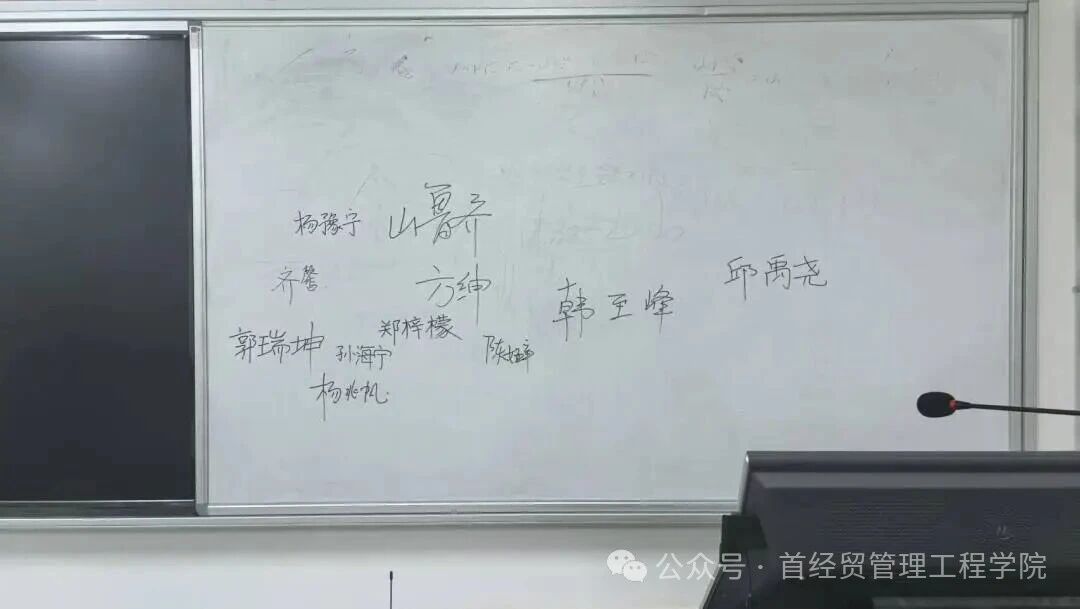 杨豫宁 山鲁齐
邱禹尧
齐馨 方绅
韩至峰
郑梓檬
郭瑞坤 孙海宁
杨兆帆
公众号·首经贸管理工程学院